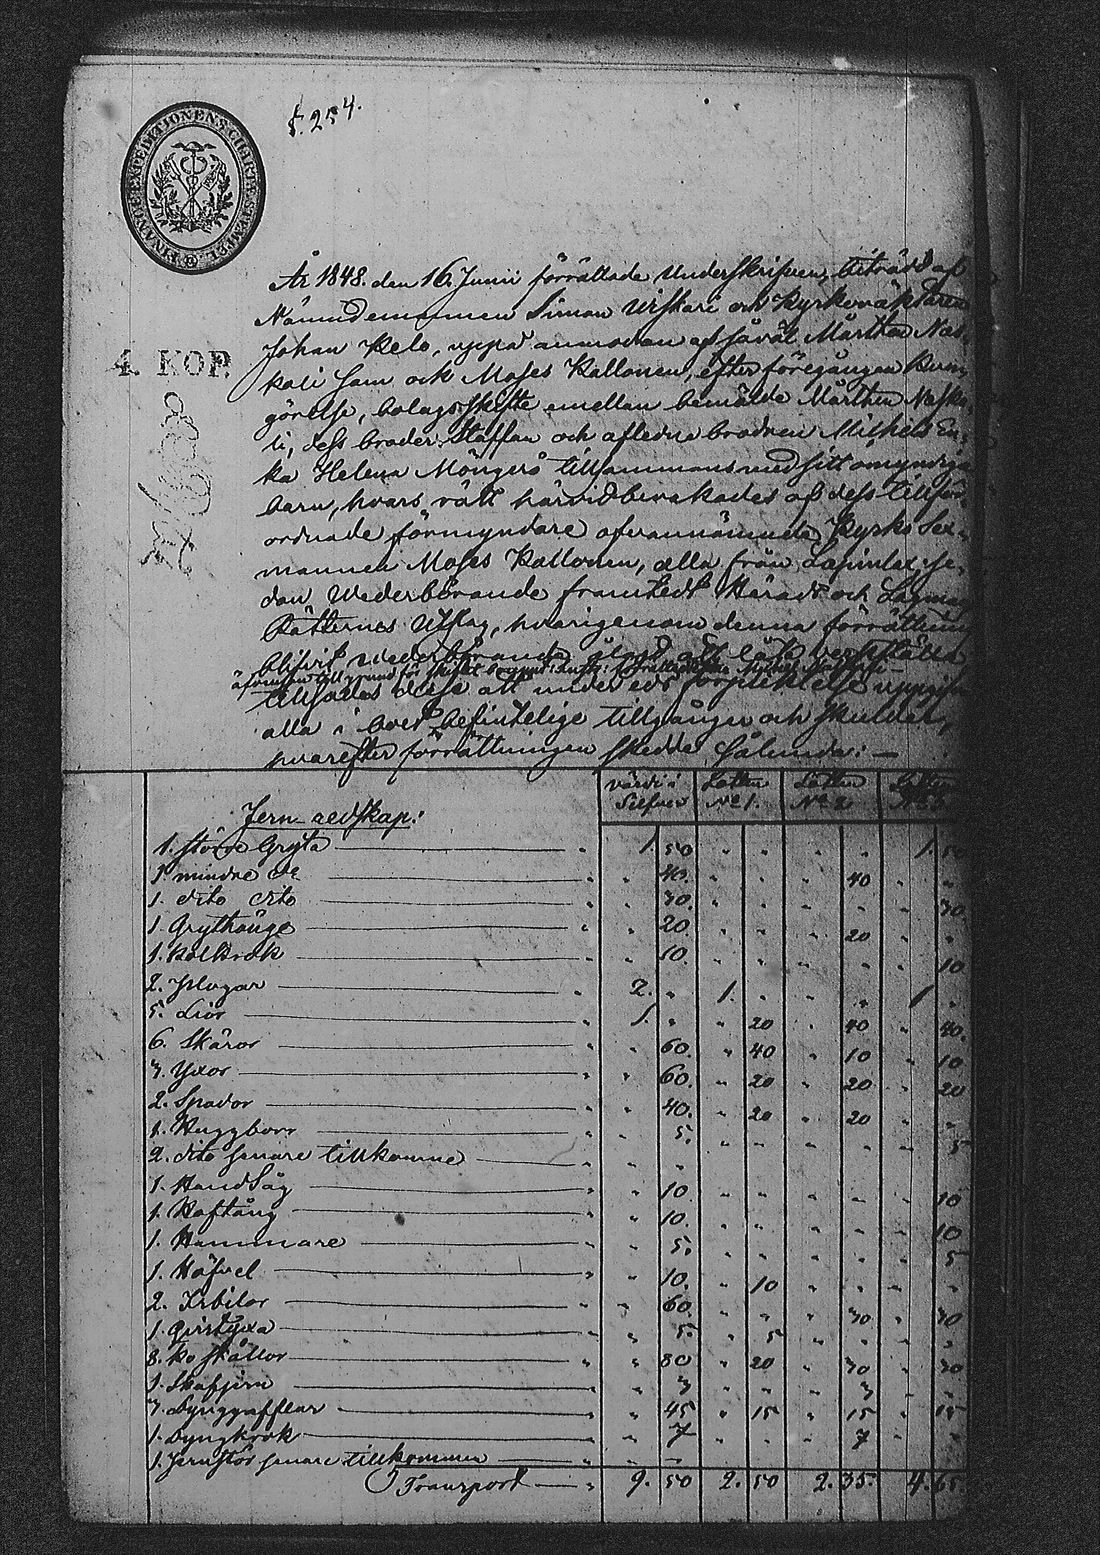 FINANCE EXPEDITIONENS CHARTÆ STEMPEL
§. 254.
4. KOP.
År 1848. den 16. Junii förrättade Underskrifven, biträdd af
Nämndemannen Simon Uiskari och Kyrkoväktaren
Johan Kelo, uppå anmodan af såväl Mårthen Nas-
kali som ock Moses Kallonen, efter föregången kun-
görelse, bolagsskifte emellan bemälde Mårthen Naska-
li, dess broder Staffan och aflidne brodren Michels En-
ka Helena Möngerö tillsammans med sitt omyndiga
barn, hvars rätt härvid bevakades af dess tillför-
ordnade förmyndare ofvannämnde Kyrko Sex-
mannen Moses Kallonen, alla från
dan Wederbörande framtedt Härads och Lagmans
Rätternes Utslag, hvarigenom denna förrättning
blifvit wederbörande ålagd att låta verkställa
till grund för skiftet
tillsades desse att under eds förpliktelse uppgifva
alla i boet befintelige tillgångar och skulder,
hvarefter förrättningen skedde sålunda: —
värdi i Silfver Lotten No 1. Lotten No 2 Lotten No 3
Jern-redskap:
1. större Gryta — " 1. 50 " " " " 1. 50
1. mindre do — " " 40. " " " 40 " "
1. dito dito — " " 70. " " " " " 70.
1. Grythänge — " " 20. " " " 20 " "
1. Kolkrok — " " 10. " " " " " 10
2. Plogar — " 2. " 1. " " " 1 "
5. Liór — " 1. " " 20 " 40 " 40.
6. Skäror — " " 60. " 40 " 10 " 10
7. Yxor — " " 60. " 20 " 20 " 20
2. Spador — " " 40. " 20 " 20 " "
1. Huggborr — " " 5. " " " " " 5
2. dito senare tillkomne — " " "
1. HandSåg — " " 10. " " " " " 10
1. Hoftång — " " 10. " " " " " 10
1. Hammare — " " 5. " " " " " 5
1. Höfvel — " " 10. " 10 " " " "
2. — " " 60. " " " 30 " 30
1. — " " 5. " 5 " " " "
8. Ko skällor — " " 80 " 20 " 30 " 30
1. Skafjern — " " 3 " " " 3 " "
3. Dynggafflar — " " 45 " 15 " 15 " 15
1. Dyngkrok — " " 7 " " " 7 " "
1. Jernstör senare tillkommen — " " —
Transport — " 9. 50 2. 50 2. 35. 4. 65.